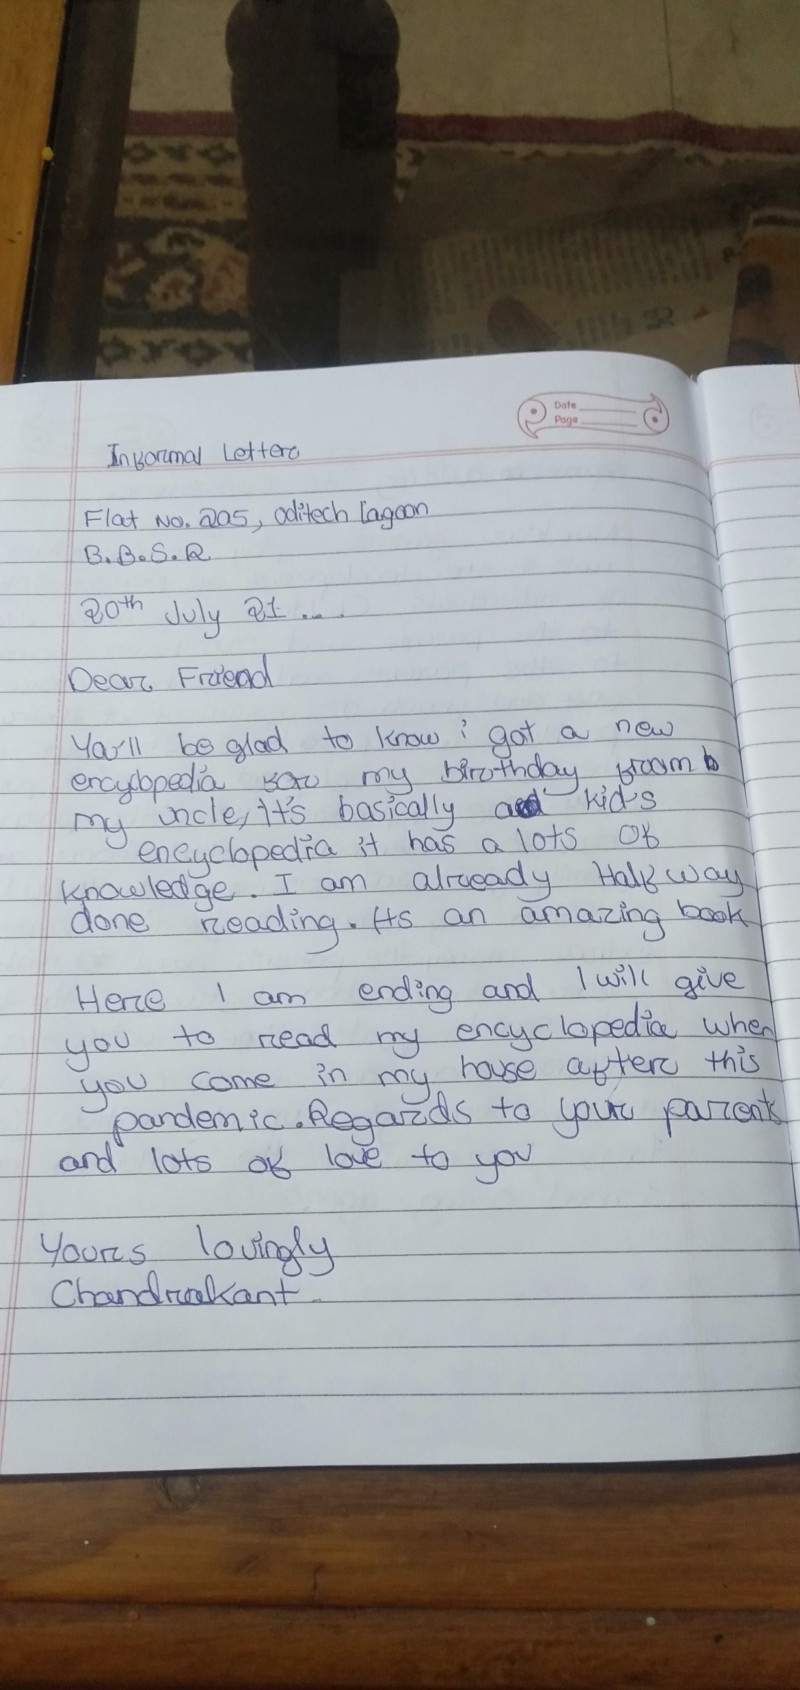 Date
Page
Informal Letter
Flat No. 205, Oditech Lagoon
B.B.S.R
20th July 21 ...
Dear Friend
You'll be glad to know i got a new
encyclopedia for my birthday from
my uncle, it's basically a kid's
encyclopedia it has a lots of
knowledge. I am already Half way
done reading. Its an amazing book
Here I am ending and I will give
you to read my encyclopedia when
you come in my house after this
pandemic. Regards to your parents
and lots of love to you
Yours lovingly
Chandrakant.